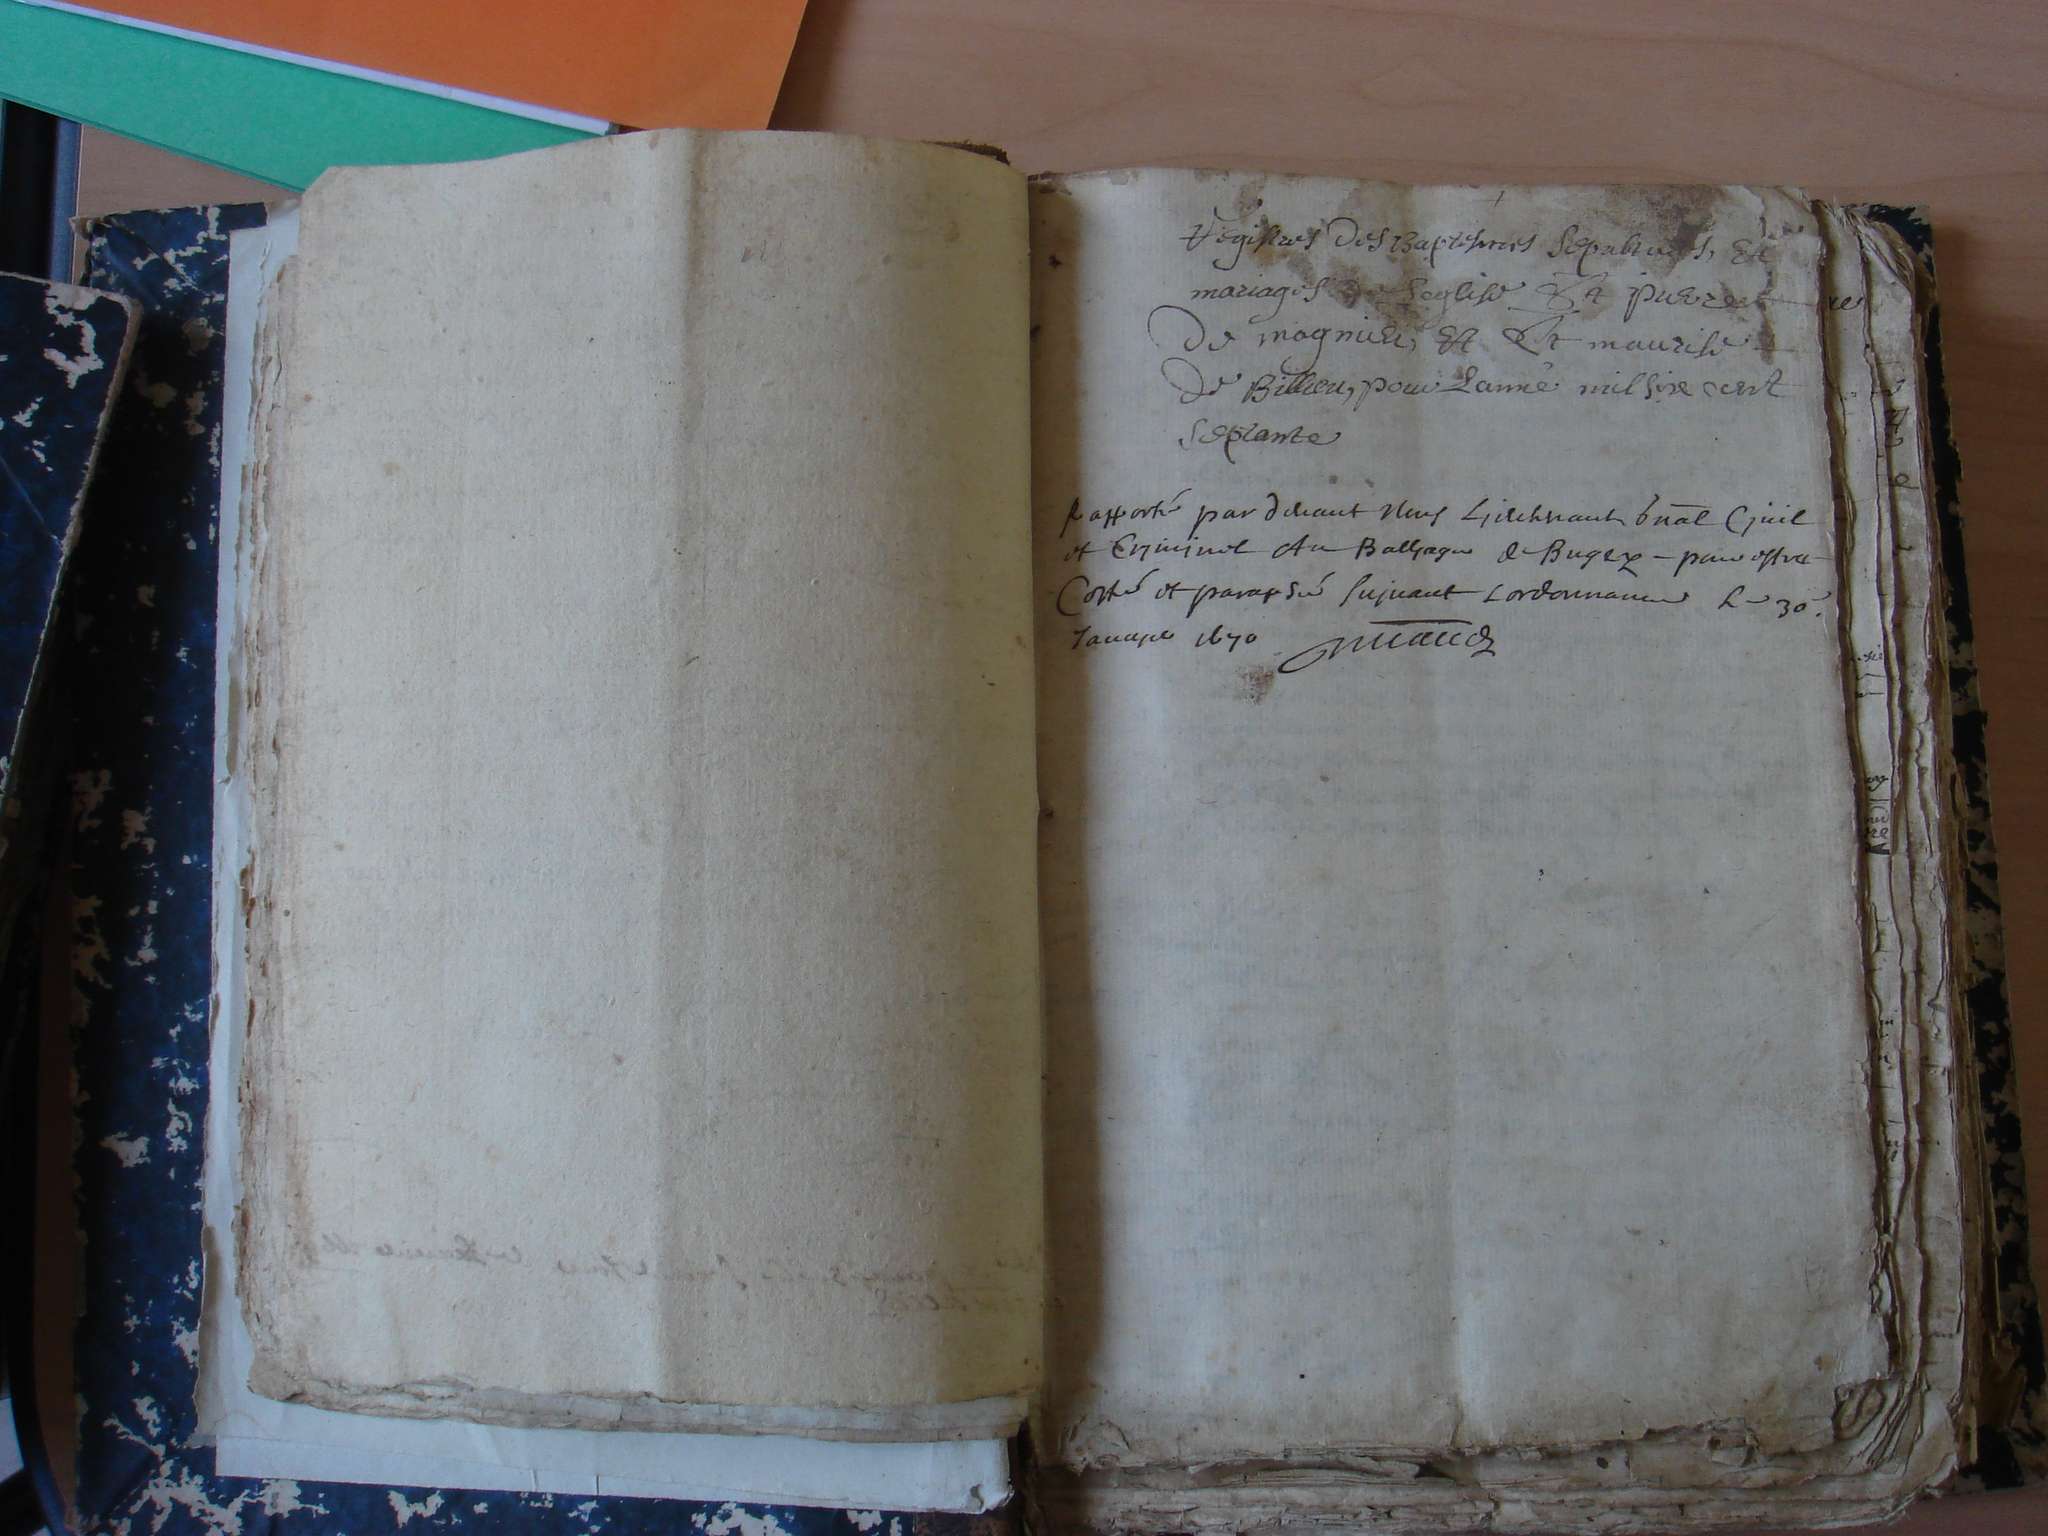 Registres des Baptesmes Sepultures, Et
mariages de Leglise St pierre
De magnieu, Et St maurise
De Billieu, pour Lanné mil six cent
septante
Rapporté par devant Nous Lieutenant gnal Civil
et Criminel Au Balliage de Bugey pour estre
Cotté et paraphé suivant Lordonnance Le 30e
Janvyer 1670